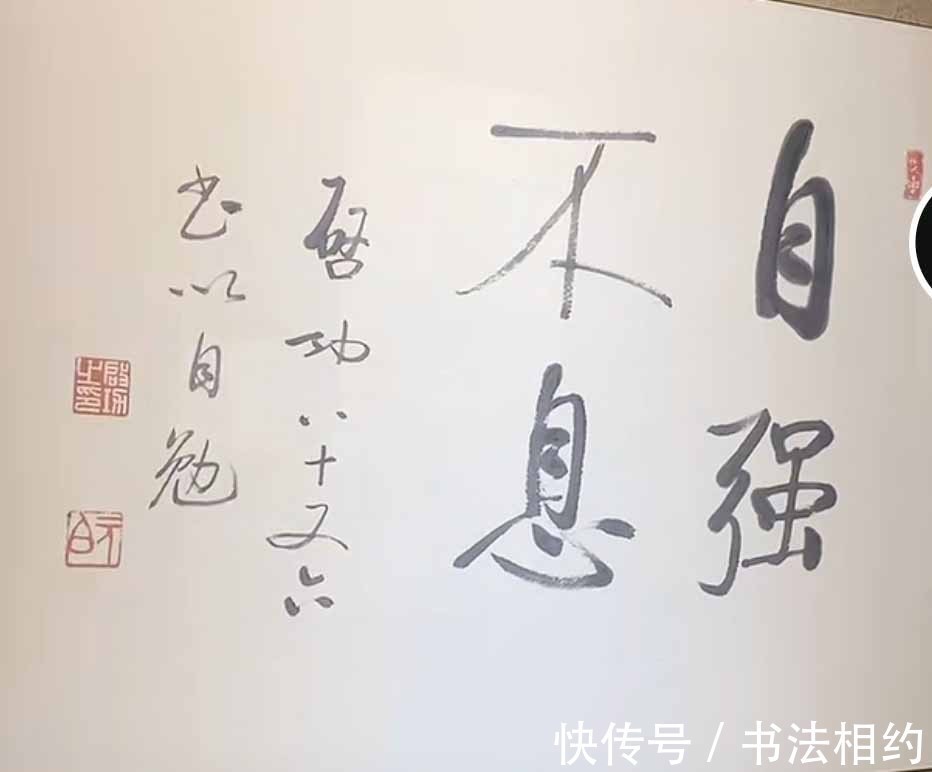 自强
不息
启功八十又六
书以自勉
启功之印
元白
快传号 / 书法相约